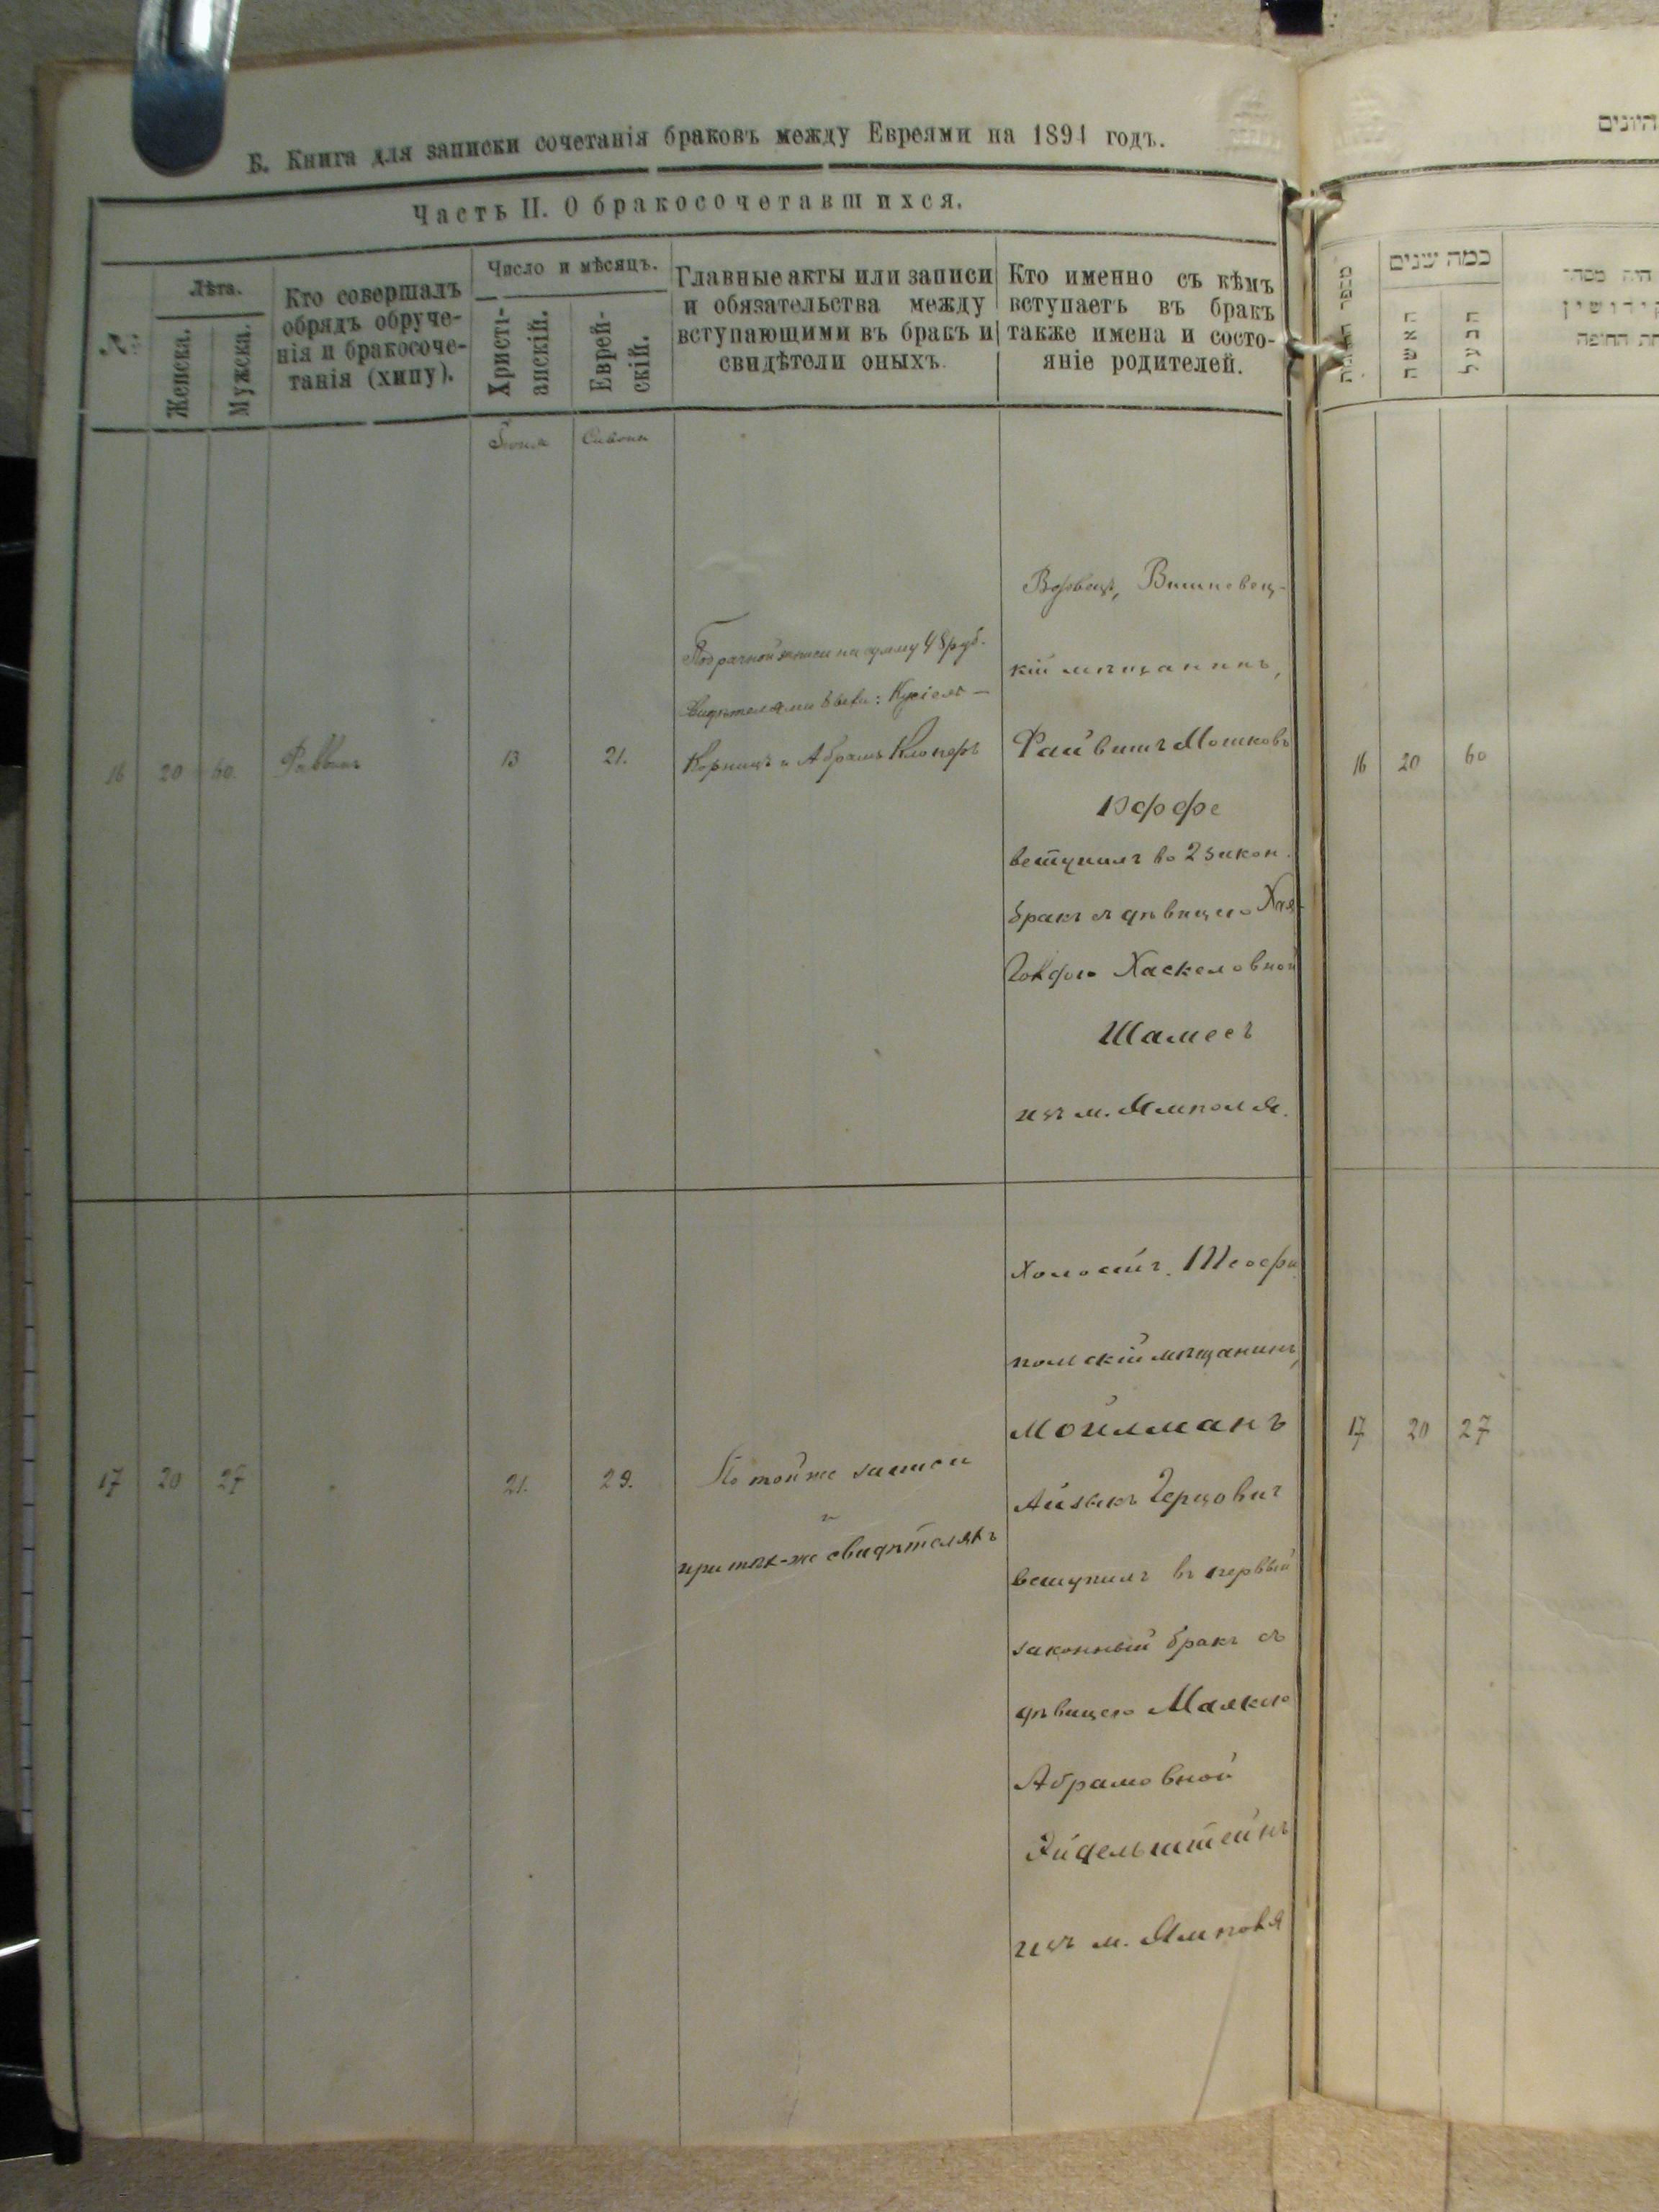 Б. Книга для записки сочетанія браковъ между Евреями на 1894 годъ.
Часть II. О бракосочетавшихся.
№
Лѣта.
Женска.
Мужска.
Кто совершалъ
обрядъ обруче-
нія и бракосоче-
танія (хипу).
Число и мѣсяцъ.
Христі-
анскій.
Еврей-
скій.
Главные акты или записи
и обязательства между
вступающими въ бракъ и
свидѣтели оныхъ.
Кто именно съ кѣмъ
вступаетъ въ бракъ
также имена и состо-
яніе родителей.
Іюня
Сивонъ
16
20
60.
Раввинъ
13
21.
По брачной записи на сумму 48 руб.
Свидѣтелями были: Кусіель
Корницъ и Абрамъ Клоперъ
Вдовецъ, Вишневец-
кій мѣщанинъ,
Файвишъ Мошковъ
Іоффе
вступилъ во 2 закон.
бракъ съ дѣвицею Хая-
Хаскеловной
Шамесъ
изъ м. Ямполя.
17
20
27
21.
29.
По той же записи
и
при тѣх-же свидѣтеляхъ
Холостъ, Теофи
польскій мѣщанинъ,
Мойлманъ
Айзыкъ Герцовичъ
вступилъ въ первый
законный бракъ съ
дѣвицею Малкою
Абрамовной
Эйдельштейнъ
изъ м. Ямполя
כמה שנים
האשה
הבעל
היה מסדר
קידושין
החופה
16
20
60
17
20
27